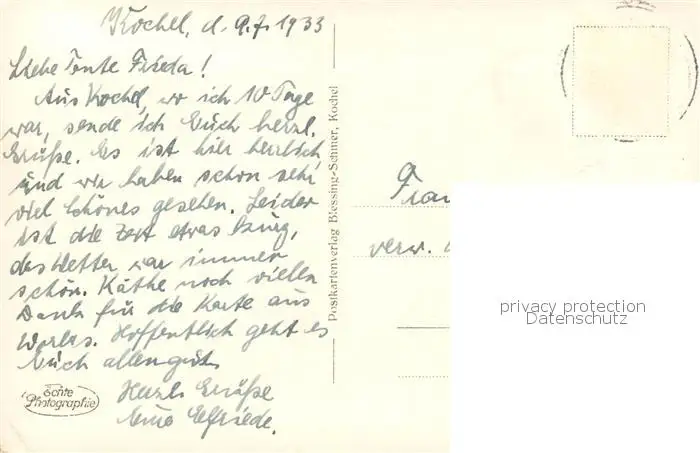 Kochel, d. 9.7.1933
Liebe Tante Frieda!
Aus Kochel, wo ich 10 Tage
war, sende ich Euch herzl.
Grüße. Es ist hier herrlich
und wir haben schon sehr
viel Schönes gesehen. Leider
ist die Zeit etwas kurz,
das Wetter war immer
schön. Käthe noch vielen
Dank für die Karte aus
Hoffentlich geht es
Euch allen gut.
Herzl. Grüße
Eure Elfriede.
Echte
Photographie
Postkartenverlag Blessing-Schmer, Kochel
Frau
verw.
privacy protection
Datenschutz